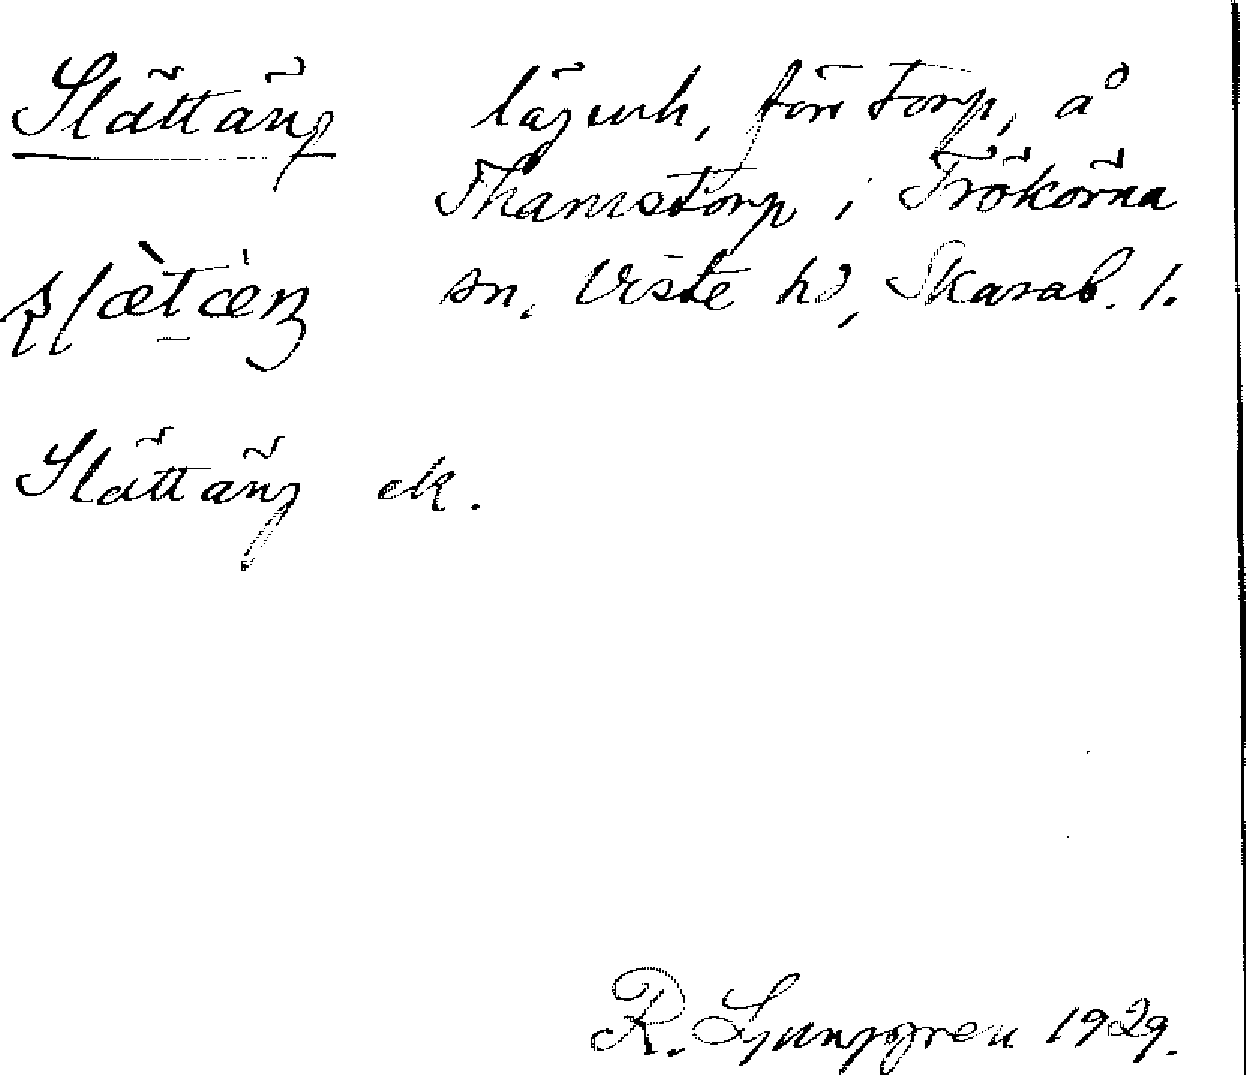 Slättäng lägenh, förr torp, å
Thamstorp i Trökörna
sn, Viste hd, Skarab. l.
Slättäng ek.
R. Ljunggren 1929.